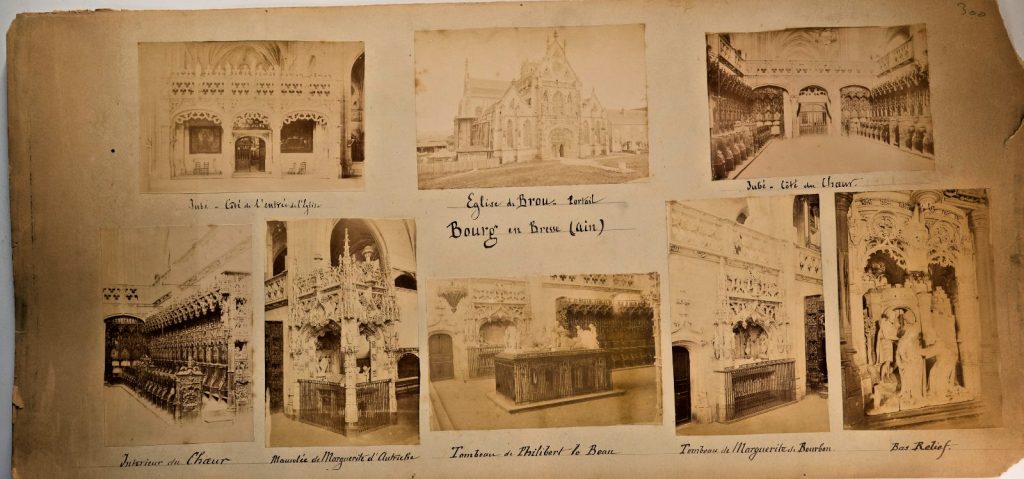 300
Jubé - Côté de l'entrée de l'Eglise
Eglise de Brou. Portail
Bourg en Bresse (Ain)
Jubé - Côté du Chœur.
Interieur du Chœur
Mausolée de Marguerite d'Autriche
Tombeau de Philibert le Beau
Tombeau de Marguerite de Bourbon
Bas Relief.